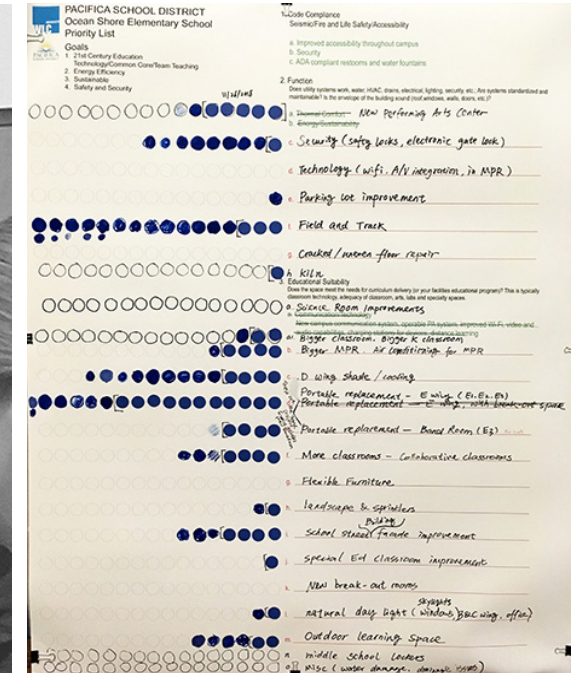 VLC
PACIFICA
PACIFICA SCHOOL DISTRICT
Ocean Shore Elementary School
Priority List
Goals
1. 21st Century Education
Technology/Common Core/Team Teaching
2. Energy Efficiency
3. Sustainable
4. Safety and Security
1. Code Compliance
Seismic/Fire and Life Safety/Accessibility
a. Improved accessibility throughout campus
b. Security
c. ADA compliant restrooms and water fountains
2. Function
Does utility systems work, water, HVAC, drains, electrical, lighting, security, etc. Are systems standardized and
maintainable? Is the envelope of the building sound (roof, windows, walls, doors, etc.)?
a. Thermal Comfort New Performing Arts Center
b. Energy/Sustainability
c. Security (safty locks, electronic gate lock)
d. Technology (wifi, A/V integration, in MPR)
e. Parking lot improvement
f. Field and Track
g. Cracked/uneven floor repair
h. Kiln
3. Educational Suitability
Does the space meet the needs for curriculum delivery (or your facilities educational program)? This is typically
classroom technology, adequacy of classroom, arts, labs and specialty spaces.
a. Science Room Improvements
a. Communications/technology
New campus communication system, operable PA system, improved Wi-Fi, video and
audio capabilities, charging stations for devices, distance learning
Bigger classroom. Bigger K classroom
b. Bigger MPR. Air conditioning for MPR
c. D wing shade / cooling
Portable replacement - E wing (E1, E2, E3)
Portable replacement - E wing, with break-out space
Portable replacement - Band Room (E3)
f. More classrooms - Collaborative classrooms
g. Flexible Furniture
h. landscape & sprinklers
Building
i. school street facade improvement
j. special Ed classroom improvement
k. New break-out rooms
skylights
l. natural day light (windows, B&C wing, office)
m. Outdoor learning space
n middle school lockers
o Misc (water damage, drainage issues)